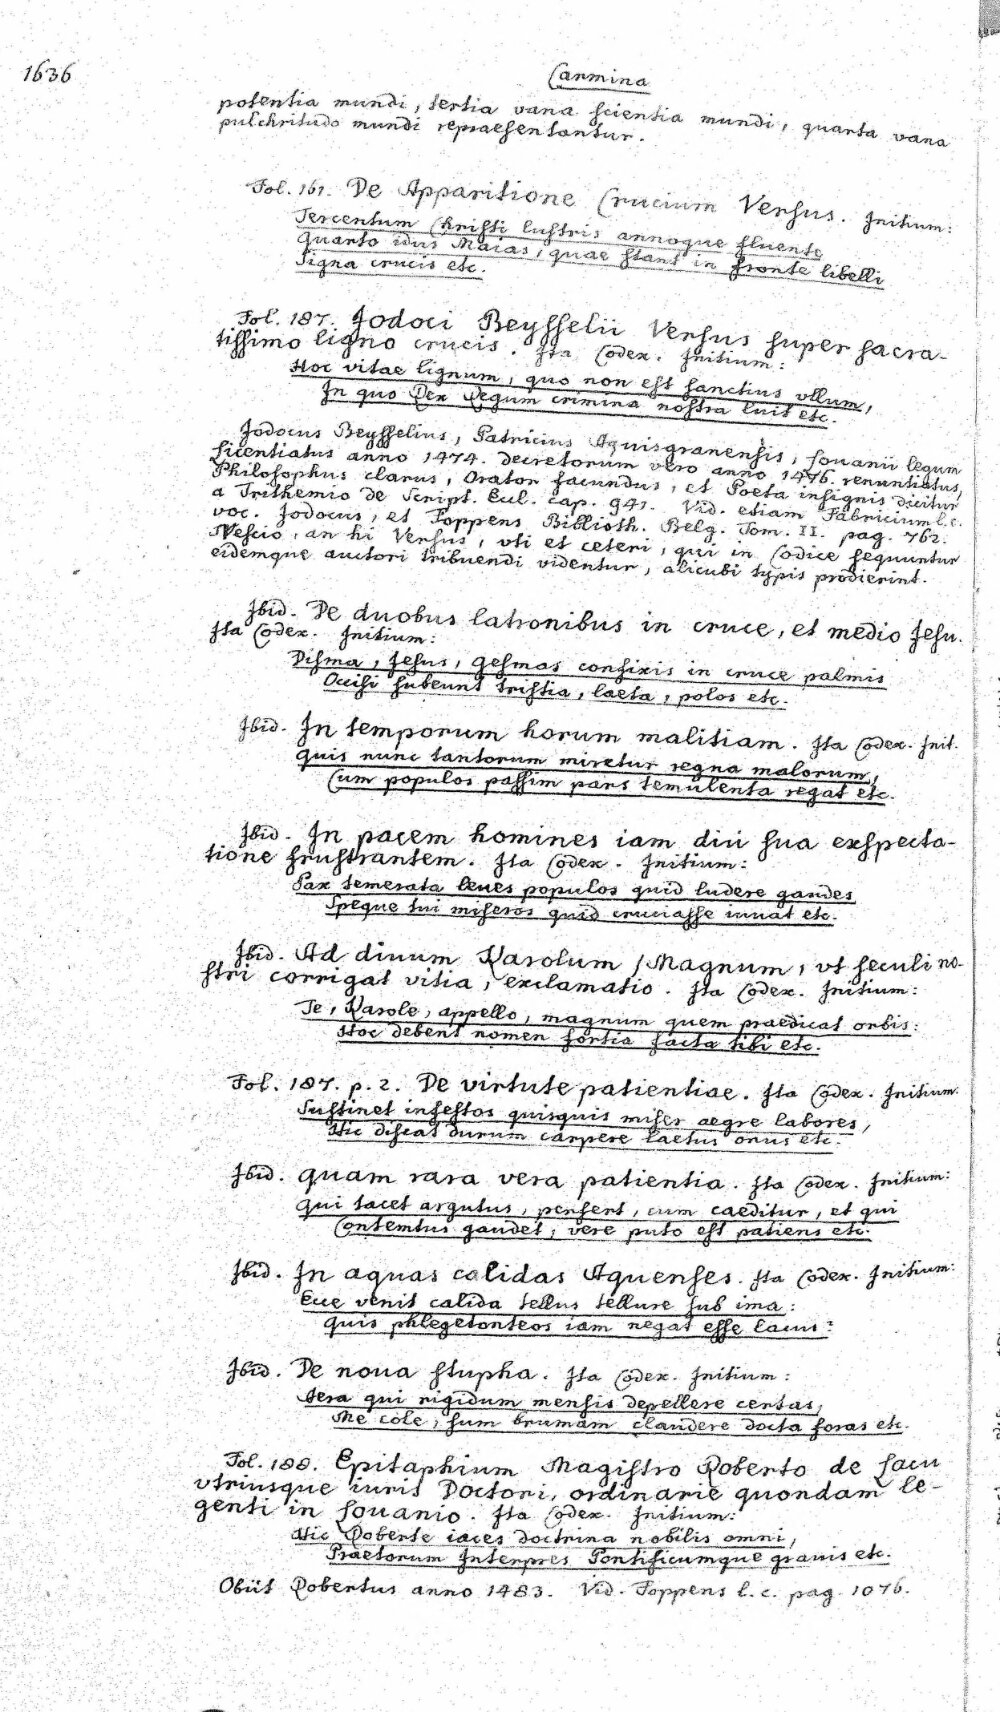 1636
Carmina
potentia mundi, tertia vana scientia mundi, quarta vana
pulchritudo mundi repraesentantur.
Fol. 161. De Apparitione Crucium Versus. Initium:
Tercentum Christi lustris annoque fluente
Quarto idus Maias, quae stant in fronte libelli
Signa crucis etc.
Fol. 187. Jodoci Beysselii Versus super sacra-
tissimo ligno crucis. Ita Codex. Initium:
Hoc vitae lignum, quo non est sanctius vllum,
In quo Rex Regum crimina nostra luit etc.
Jodocus Beysselius, Patricius Aquisgranensis, Louanii legum
licentiatus anno 1474. decretorum vero anno 1476. renuntiatus,
Philosophus clarus, Orator facundus, et Poeta insignis dicitur
a Trithemio de Script. Eccl. cap. 941. Vid. etiam Fabricium l.c.
voc. Jodocus, et Foppens Biblioth. Belg. Tom. II. pag. 762.
Nescio, an hi Versus, vti et ceteri, qui in Codice sequuntur
eidemque auctori tribuendi videntur, alicubi typis prodierint.
Ibid. De duobus latronibus in cruce, et medio Jesu.
Ita Codex. Initium:
Disma, Jesus, Gesmas confixis in cruce palmis
Occisi subeunt tristia, laeta, polos etc.
Ibid. In temporum horum malitiam. Ita Codex. Init.
Quis nunc tantorum miretur regna malorum,
Cum populos passim pars temulenta regat etc.
Ibid. In pacem homines iam diu sua exspecta-
tione frustrantem. Ita Codex. Initium:
Pax temerata leues populos quid ludere gaudes
Speque tui miseros quid cruciasse iuuat etc.
Ibid. Ad diuum Karolum Magnum, vt seculi no-
stri corrigat vitia, exclamatio. Ita Codex. Initium:
Te, Karole, appello, magnum quem praedicat orbis:
Hoc debent nomen fortia facta tibi etc.
Fol. 187. p. 2. De virtute patientiae. Ita Codex. Initium
Sustinet infestos quisquis miser aegre labores,
Hic discat durum carpere laetus onus etc.
Ibid. Quam rara vera patientia. Ita Codex. Initium:
Qui tacet argutus, pensent, cum caeditur, et qui
Contemtus gaudet, vere puto est patiens etc.
Ibid. In aquas calidas Aquenses. Ita Codex. Initium:
Ecce venit calida tellus tellure sub ima:
Quis phlegetonteos iam negat esse lacus?
Ibid. De noua stupha. Ita Codex. Initium:
Aera qui rigidum mensis depellere certas,
Me cole, sum brumam claudere docta foras etc.
Fol. 188. Epitaphium Magistro Roberto de Lacu
vtriusque iuris Doctori, ordinarie quondam le-
genti in Louanio. Ita Codex. Initium:
Hic Roberte iaces doctrina nobilis omni,
Praetorum Interpres Pontificumque grauis etc.
Obiit Robertus anno 1483. Vid. Foppens l.c. pag. 1076.